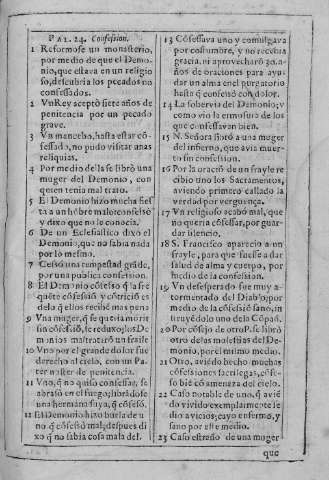 PAL. 24. Confession.
1 Reformose un monasterio,
por medio de que el Demo-
nio, que estava en un religio
so, descubria los pecados no
confessados.
2 Vn Rey aceptò siete años de
penitencia por un pecado
grave.
3 Vn mancebo, hasta estar cõ-
fessado, no pudo visitar unas
reliquias.
4 Por medio del a se librò una
muger del Demonio, con
quien tenia mal trato.
5 El Demonio hizo mucha fies
ta a un hõbre mal confessado
y dixo que no le conocia.
6 De un Eclesiastico dixo el
Demonio, que no sabia nada
por lo mesmo.
7 Cessò una tempestad grãde,
por una publica confession.
8 El Demonio cõfesso q̃ la fre
quẽte cõfessiõ y cõtricion es
de lo q̃ ellos recibẽ mas pena
9 Vna muger, q̃ se queria morir
sin cõfessiõ, se reduxo, y los De
monios maltratarõ un fraile
10 Vno por el grande dolor fue
derecho al cielo, con un Pa-
ter noster de penitencia.
11 Vno, q̃ no quiso confessar, se
abrasò en el fuego; librandose
una hermana suya, q̃ cõfesò.
12 El Demonio hizo burla de u-
no q̃ cõfessò mal; despues di
xo q̃ no sabia cosa mala del.
13 Cõfessava uno y comulgava
por costumbre, y no recebia
gracia, ni aprovecharõ 30. a-
ños de oraciones para ayu-
dar un alma en el purgatorio
hasta q̃ confessò con dolor.
14 La sobervia del Demonio; y
como vio la ermosura de los
que confessavan bien.
15 N. Señora librò a una muger
del infierno, que avia muer-
to sin confession.
16 Por la oraciõ de un frayle re
cibio uno los Sacramentos,
aviendo primero callado la
verdad por verguença.
17 Vn religioso acabò mal, que
no queria cõfessar, por guar-
dar silencio.
18 S. Francisco aparecio a un
frayle, para que fuesse a dar
salud de alma y cuerpo, por
medio de la confession.
19 Vn desesperado fue muy a-
tormentado del Diablo, por
medio de la cõfessiõ sanò, in
struyẽdolo uno de la Cõpañ.
20 Por cõsejo de otro P. se librò
otro de las molestias del De-
monio, por el mismo medio.
21 Otro, aviẽdo hecho muchas
cõfessiones sacrilegas, cõfes-
sò bié cõ amenaza del cielo.
22 Caso notable de uno, q̃ aviẽ
do vivido exemplarmente le
dio a vicios; cayo enfermo, y
sano por este medio.
23 Caso estraño de una muger
que